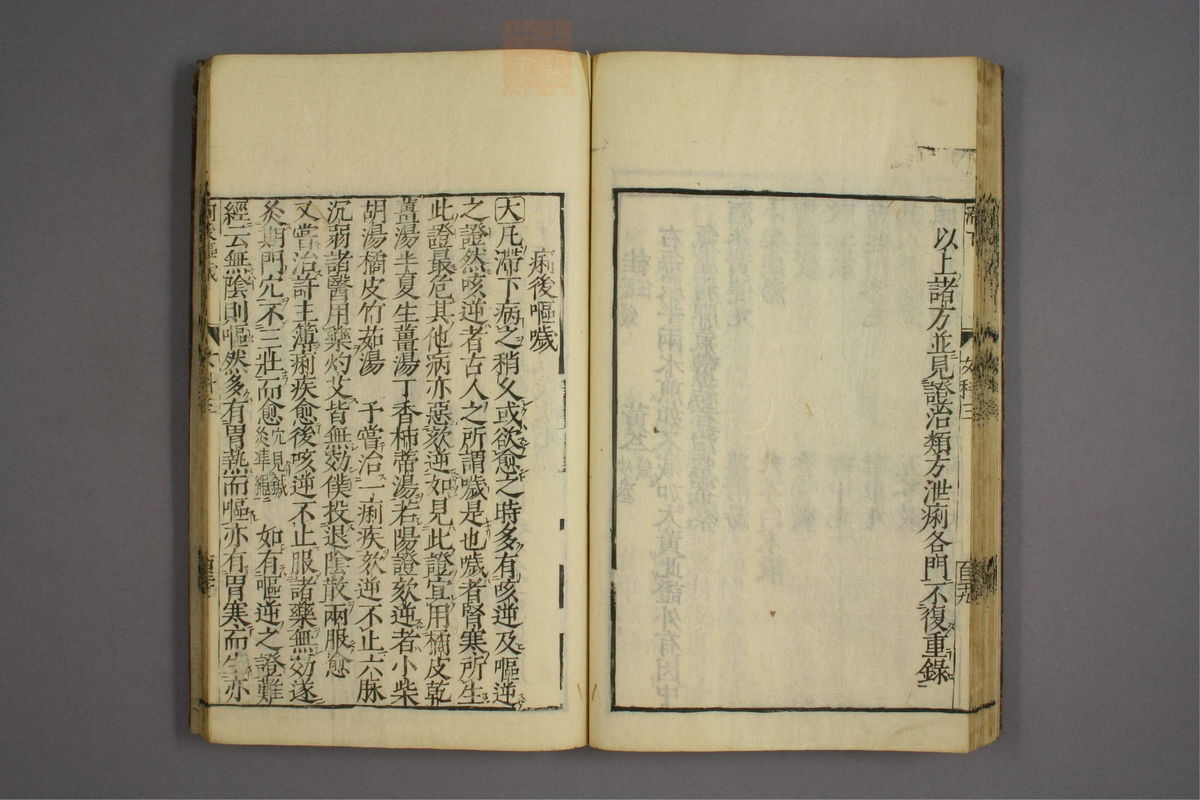 以上諸方並見證治類方泄痢各門不復重錄
痢後嘔噦
大凡滯下病之稍久或欲愈之時多有咳逆及嘔逆
之證然咳逆者古人之所謂噦是也噦者腎寒所生
此證最危其他病亦惡欬逆如見此證宜用橘皮乾
薑湯半夏生薑湯丁香柿蒂湯若陽證欬逆者小柴
胡湯橘皮竹茹湯 予嘗治一痢疾欬逆不止六脉
沉弱諸醫用藥灼艾皆無効僕投退陰散兩服愈
又嘗治許主簿痢疾愈後咳逆不止服諸藥無効遂
灸期門穴不三壯而愈 穴見鍼灸準繩 如有嘔逆之證難
經云無陰則嘔然多有胃熱而嘔亦有胃寒而生亦